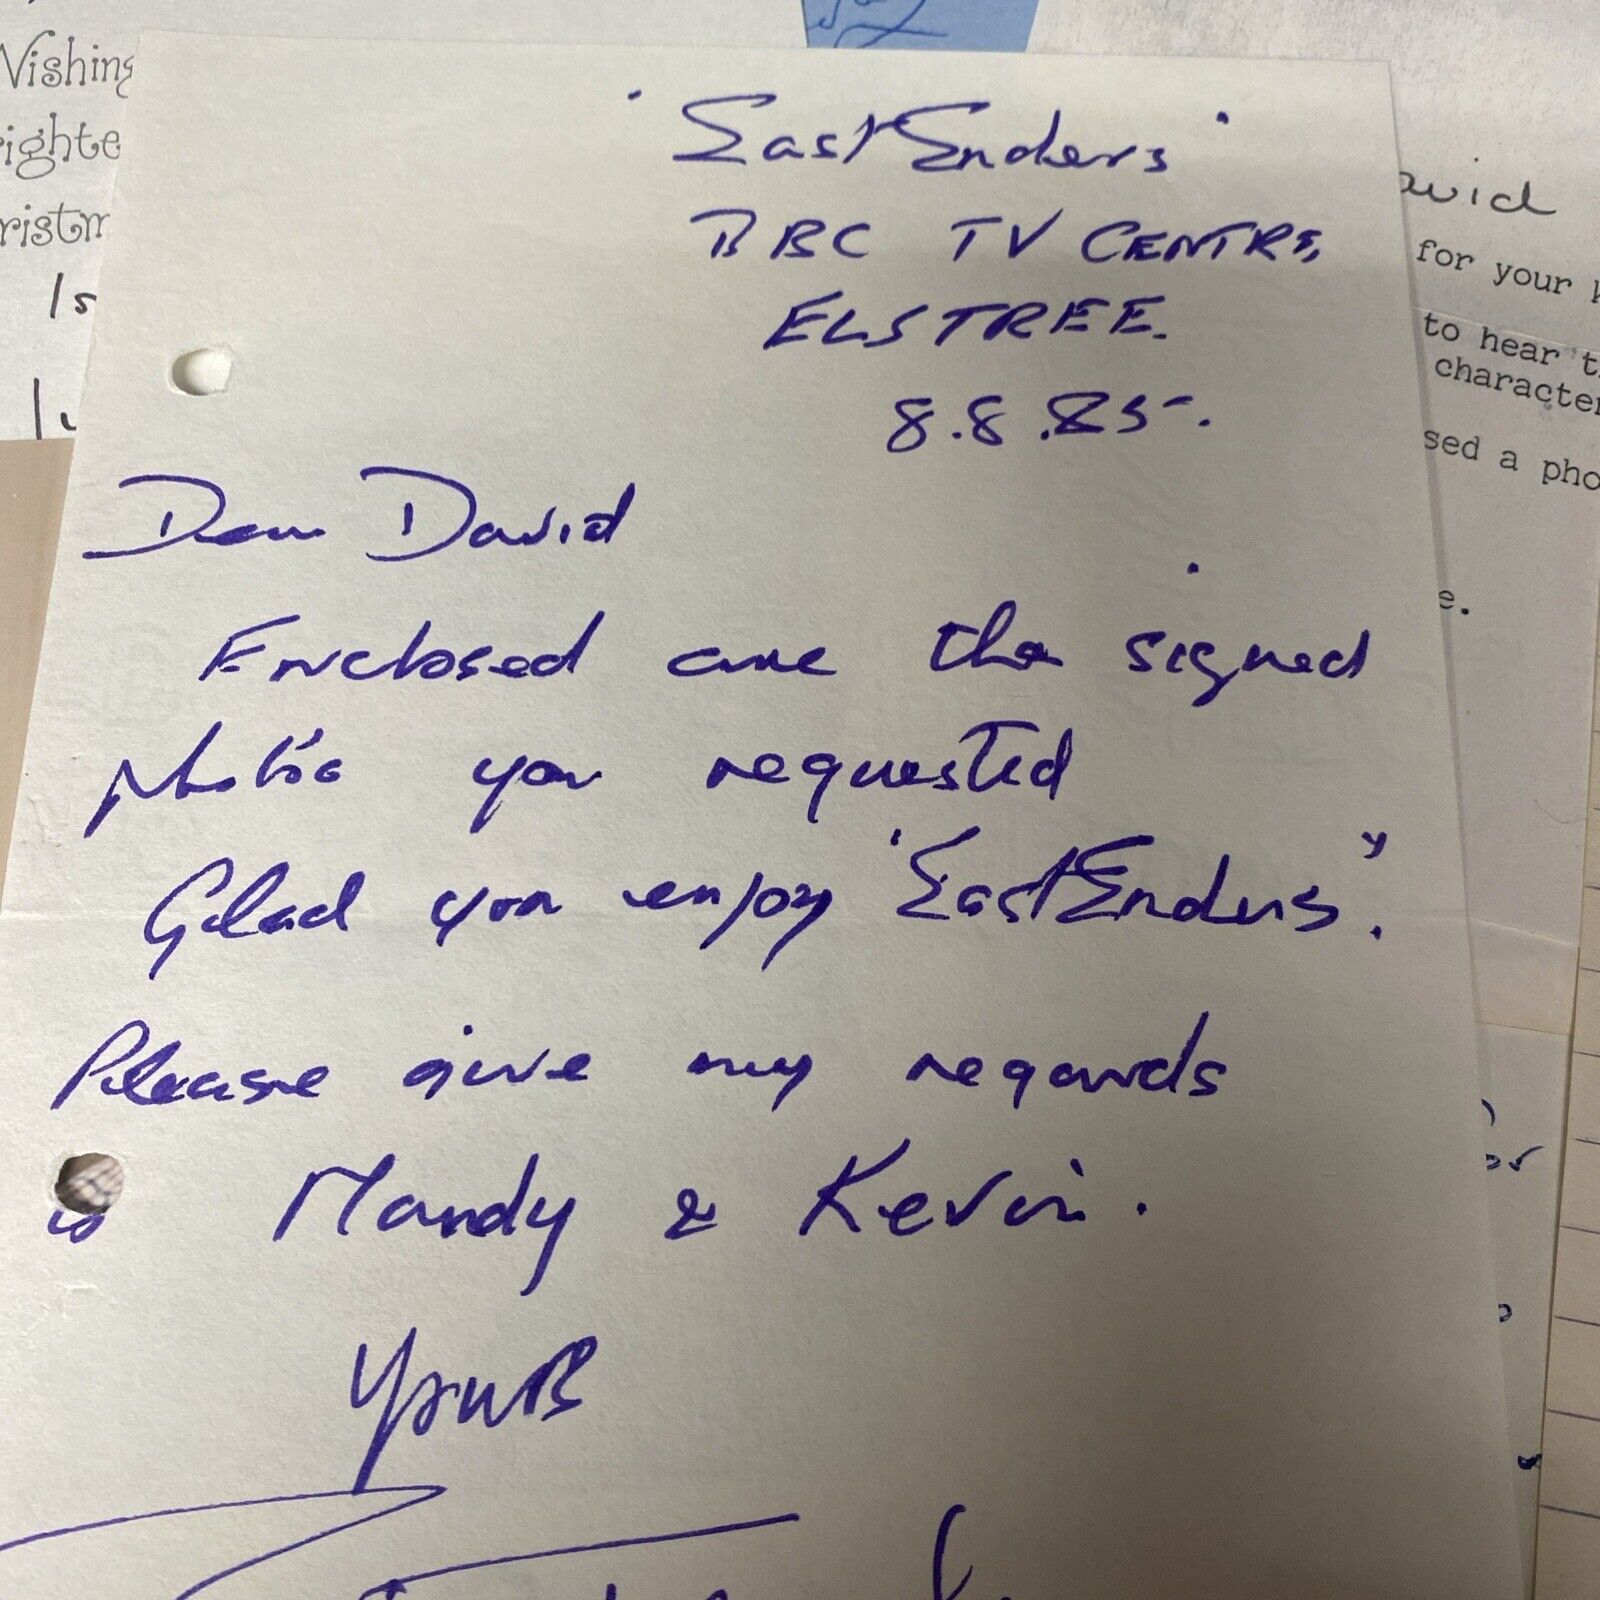 'EastEnders'
BBC TV CENTRE,
ELSTREE.
8.8.85.
Dear David
Enclosed are the signed
photo's you requested
Glad you enjoy 'EastEnders'.
Please give my regards
to Mandy & Kevin.
Yours
Wishing
righte
ristm
Is
avid
for your k
to hear t
character
sed a pho
e.
or